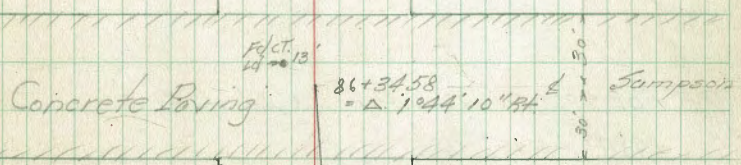 Fd CT.
13'
Concrete Paving
86+34.58
= Δ 1°44'10" Rt.
℄
30' 30'
Sampson